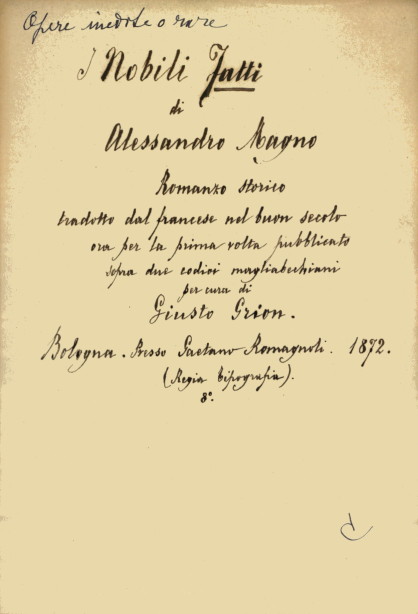 Opere inedite o rare
I Nobili Fatti
di
Alessandro Magno
Romanzo storico
tradotto dal francese nel buon secolo
ora per la prima volta pubblicato
sopra due codici magliabechiani
per cura di
Giusto Grion.
Bologna. Presso Gaetano Romagnoli. 1872.
(Regia Tipografia).
8º.